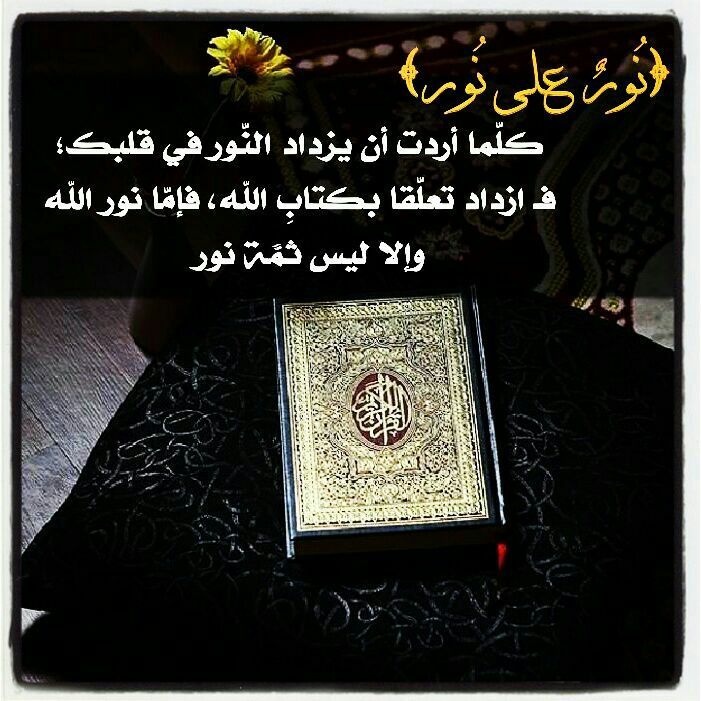 ﴿نُورٌ على نُور﴾
كلّما أردت أن يزداد النّور في قلبك؛
فـ ازداد تعلّقا بكتابِ الله، فإمّا نور الله
وإلا ليس ثمَّة نور
القرآن الكريم